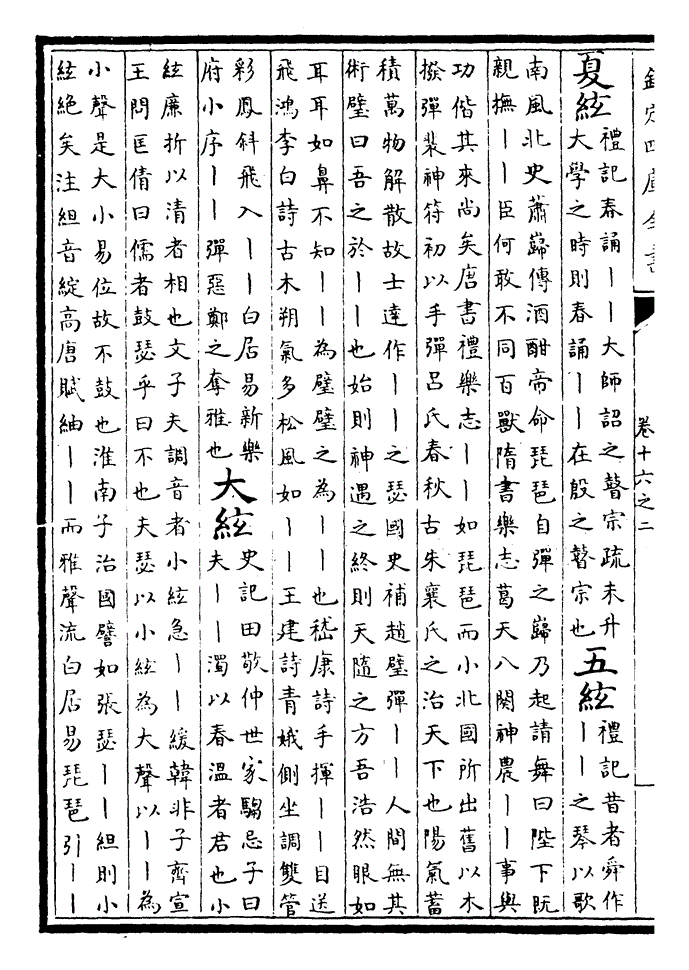 欽定四庫全書
卷十六之二
夏絃禮記春誦丨丨大師詔之瞽宗疏未升
大學之時則春誦丨丨在殷之瞽宗也五絃禮記昔者舜作
丨丨之琴以歌
南風北史蕭巋傳酒酣帝命琵琶自彈之巋乃起請舞曰陛下既
親撫丨丨臣何敢不同百獸隋書樂志葛天八闋神農丨丨事與
功偕其來尚矣唐書禮樂志丨丨如琵琶而小北國所出舊以木
撥彈裴神符初以手彈呂氏春秋古朱襄氏之治天下也陽氣蓄
積萬物解散故士達作丨丨之瑟國史補趙璧彈丨丨人問無其
術璧曰吾之於丨丨也始則神遇之終則天隨之方吾浩然眼如
耳耳如鼻不知丨丨為璧璧之為丨丨也嵇康詩手揮丨丨目送
飛鴻李白詩古木朔氣多松風如丨丨王建詩青娥側坐調雙管
彩鳳斜飛入丨丨白居易新樂
府小序丨丨彈惡鄭之奪雅也大絃史記田敬仲世家騶忌子曰
夫丨丨濁以春溫者君也小
絃廉折以清者相也文子夫調音者小絃急丨丨緩韓非子齊宣
王問匡倩曰儒者鼓瑟乎曰不也夫瑟以小絃為大聲以丨丨為
小聲是大小易位故不鼓也淮南子治國譬如張瑟丨丨絙則小
絃絶矣注絙音綻高唐賦紬丨丨而雅聲流白居易琵琶引丨丨